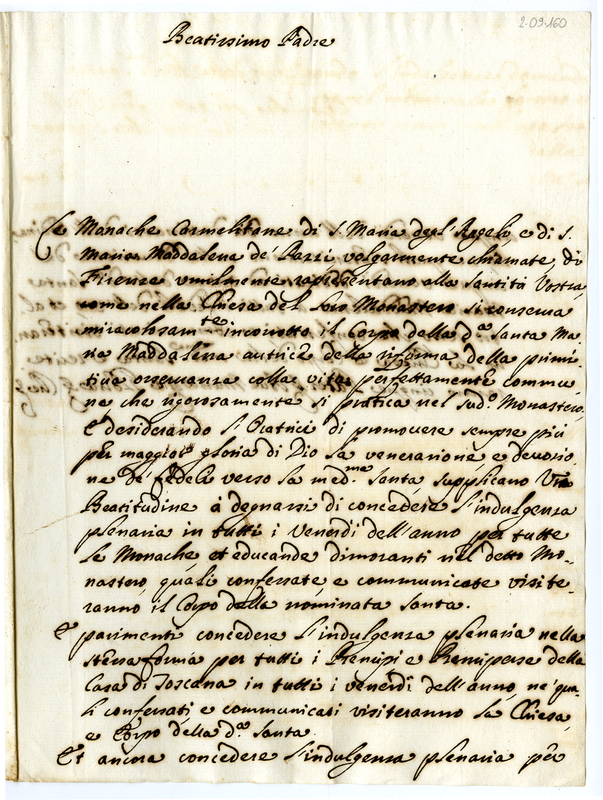 2.09.160
Beatissimo Padre
Le Monache Carmelitane di S. Maria degl'Angelo, e di S.
Maria Maddalena de' Pazzi volgarmente chiamate, di
Firenze umilmente rapresentano alla Santità Vostra,
come nella Chiesa del loro Monastero si conserva
miracolosamte incorrotto il Corpo della da Santa Ma
ria Maddalena autrice della riforma della primi¬
tiva osservanza colla vita perfettamente commu
ne che rigorosamente si pratica nel sudo Monastero,
e desiderando l'Oratrici di promovere sempre più
per maggior gloria di Dio la venerazione, e devozio
ne de' fedeli verso la medma Santa, supplicano Vra
Beatitudine à degnarsi di concedere l'indulgenza
plenaria in tutti i Venerdì dell'anno per tutte
le Monache et educande dimoranti nel detto Mo¬
nastero, quali confessate e communicate visite¬
ranno il Corpo della nominata Santa.
E parimenti concedere l'indulgenza plenaria nella
stessa forma per tutti i Principi e Principesse della
Casa di Toscana in tutti i venerdì dell'anno, ne' qua
li confessati e communicati visiteranno la Chiesa,
e Corpo della da Santa.
Et ancora concedere l'indulgenza plenaria per